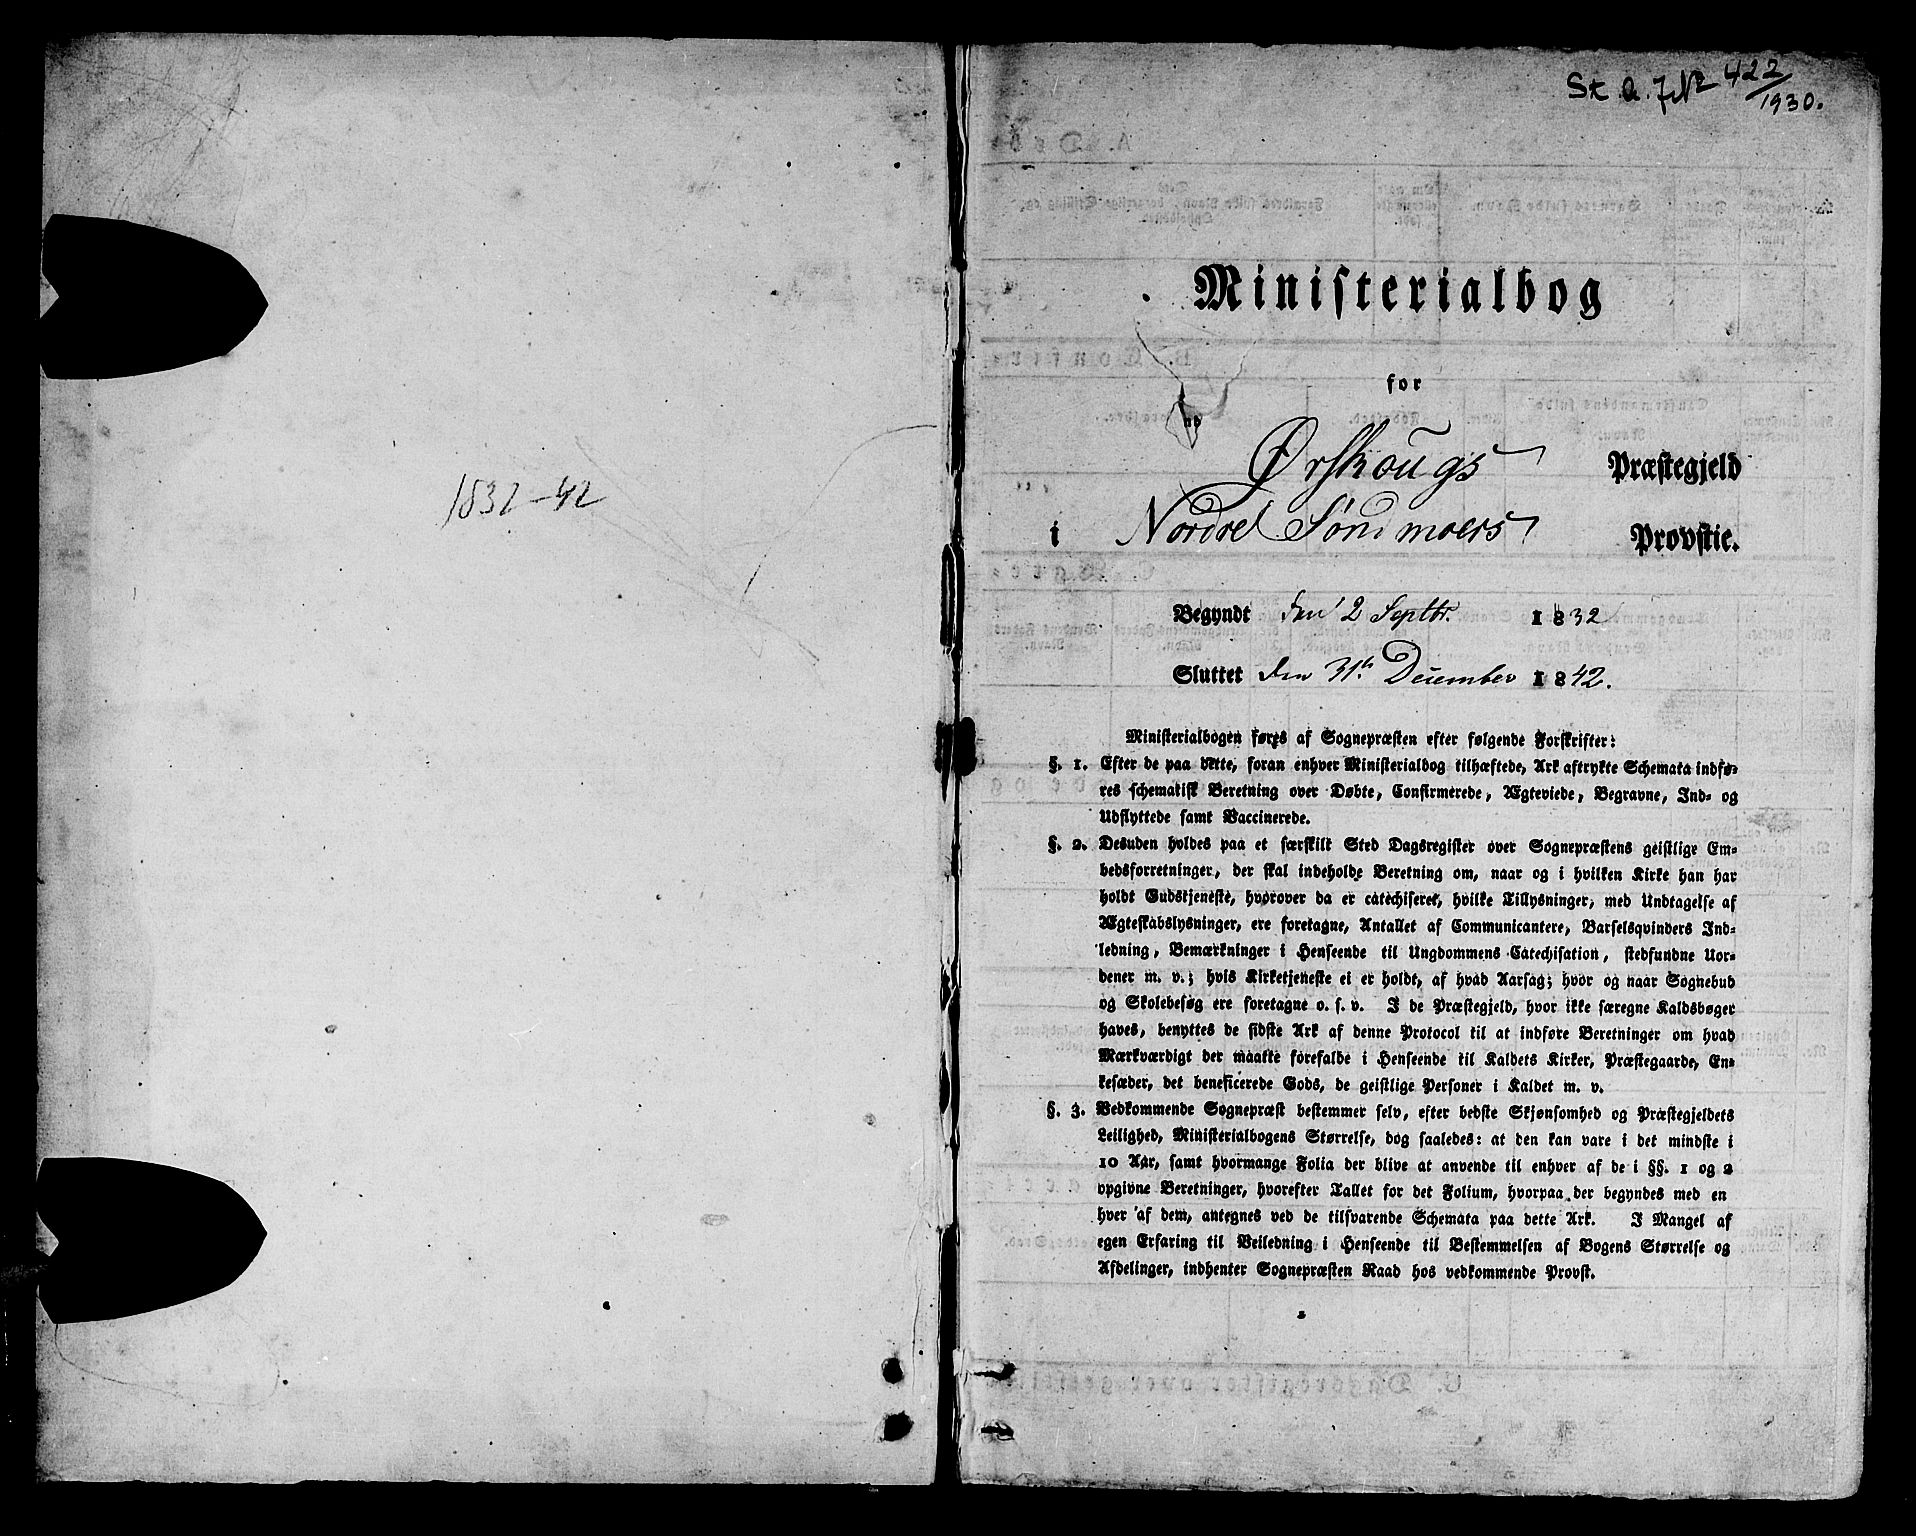 1832-42
St. A. J. No 422/1930.
Ministerialbog
for
Ørskougs Præstegjeld
i Nordre Søndmoers Provstie.
Begyndt den 2 Septbr. 1832
Sluttet den 31te December 1842.
Ministerialbogen føres af Sognepræsten efter følgende Forskrifter:
§. 1. Efter de paa dette, foran enhver Ministerialbog tilhæftede, Ark aftrykte Schemata indfø-
res schematisk Beretning over Døbte, Confirmerede, Ægteviede, Begravne, Ind- og
Udflyttede samt Vaccinerede.
§. 2. Desuden holdes paa et særskilt Sted Dagsregister over Sognepræstens geistlige Em-
bedsforretninger, der skal indeholde Beretning om, naar og i hvilken Kirke han har
holdt Gudstjeneste, hvorover da er catechiseret, hvilke Tillysninger, med Undtagelse af
Ægteskabslysninger, ere foretagne, Antallet af Communicantere, Barselqvinders Ind-
ledning, Bemærkninger i Henseende til Ungdommens Catechisation, stedfundne Uor-
dener m. v.; hvis Kirketjeneste ei er holdt, af hvad Aarsag; hvor og naar Sognebud
og Skolebesøg ere foretagne o. s. v. I de Præstegjeld, hvor ikke særegne Kaldsbøger
haves, benyttes de sidste Ark af denne Protocol til at indføre Beretninger om hvad
Mærkværdigt der maatte forefalde i Henseende til Kaldets Kirker, Præstegaarde, En-
kesæder, det beneficerede Gods, de geistlige Personer i Kaldet m. v.
§. 3. Vedkommende Sognepræst bestemmer selv, efter bedste Skjønsomhed og Præstegjeldets
Leilighed, Ministerialbogens Størrelse, dog saaledes: at den kan vare i det mindste i
10 Aar, samt hvormange Folia der blive at anvende til enhver af de i §§. 1 og 2
opgivne Beretninger, hvorefter Tallet for det Folium, hvorpaa der begyndes med en
hver af dem, antegnes ved de tilsvarende Schemata paa dette Ark. I Mangel af
egen Erfaring til Veiledning i Henseende til Bestemmelsen af Bogens Størrelse og
Afdelinger, indhenter Sognepræsten Raad hos vedkommende Provst.